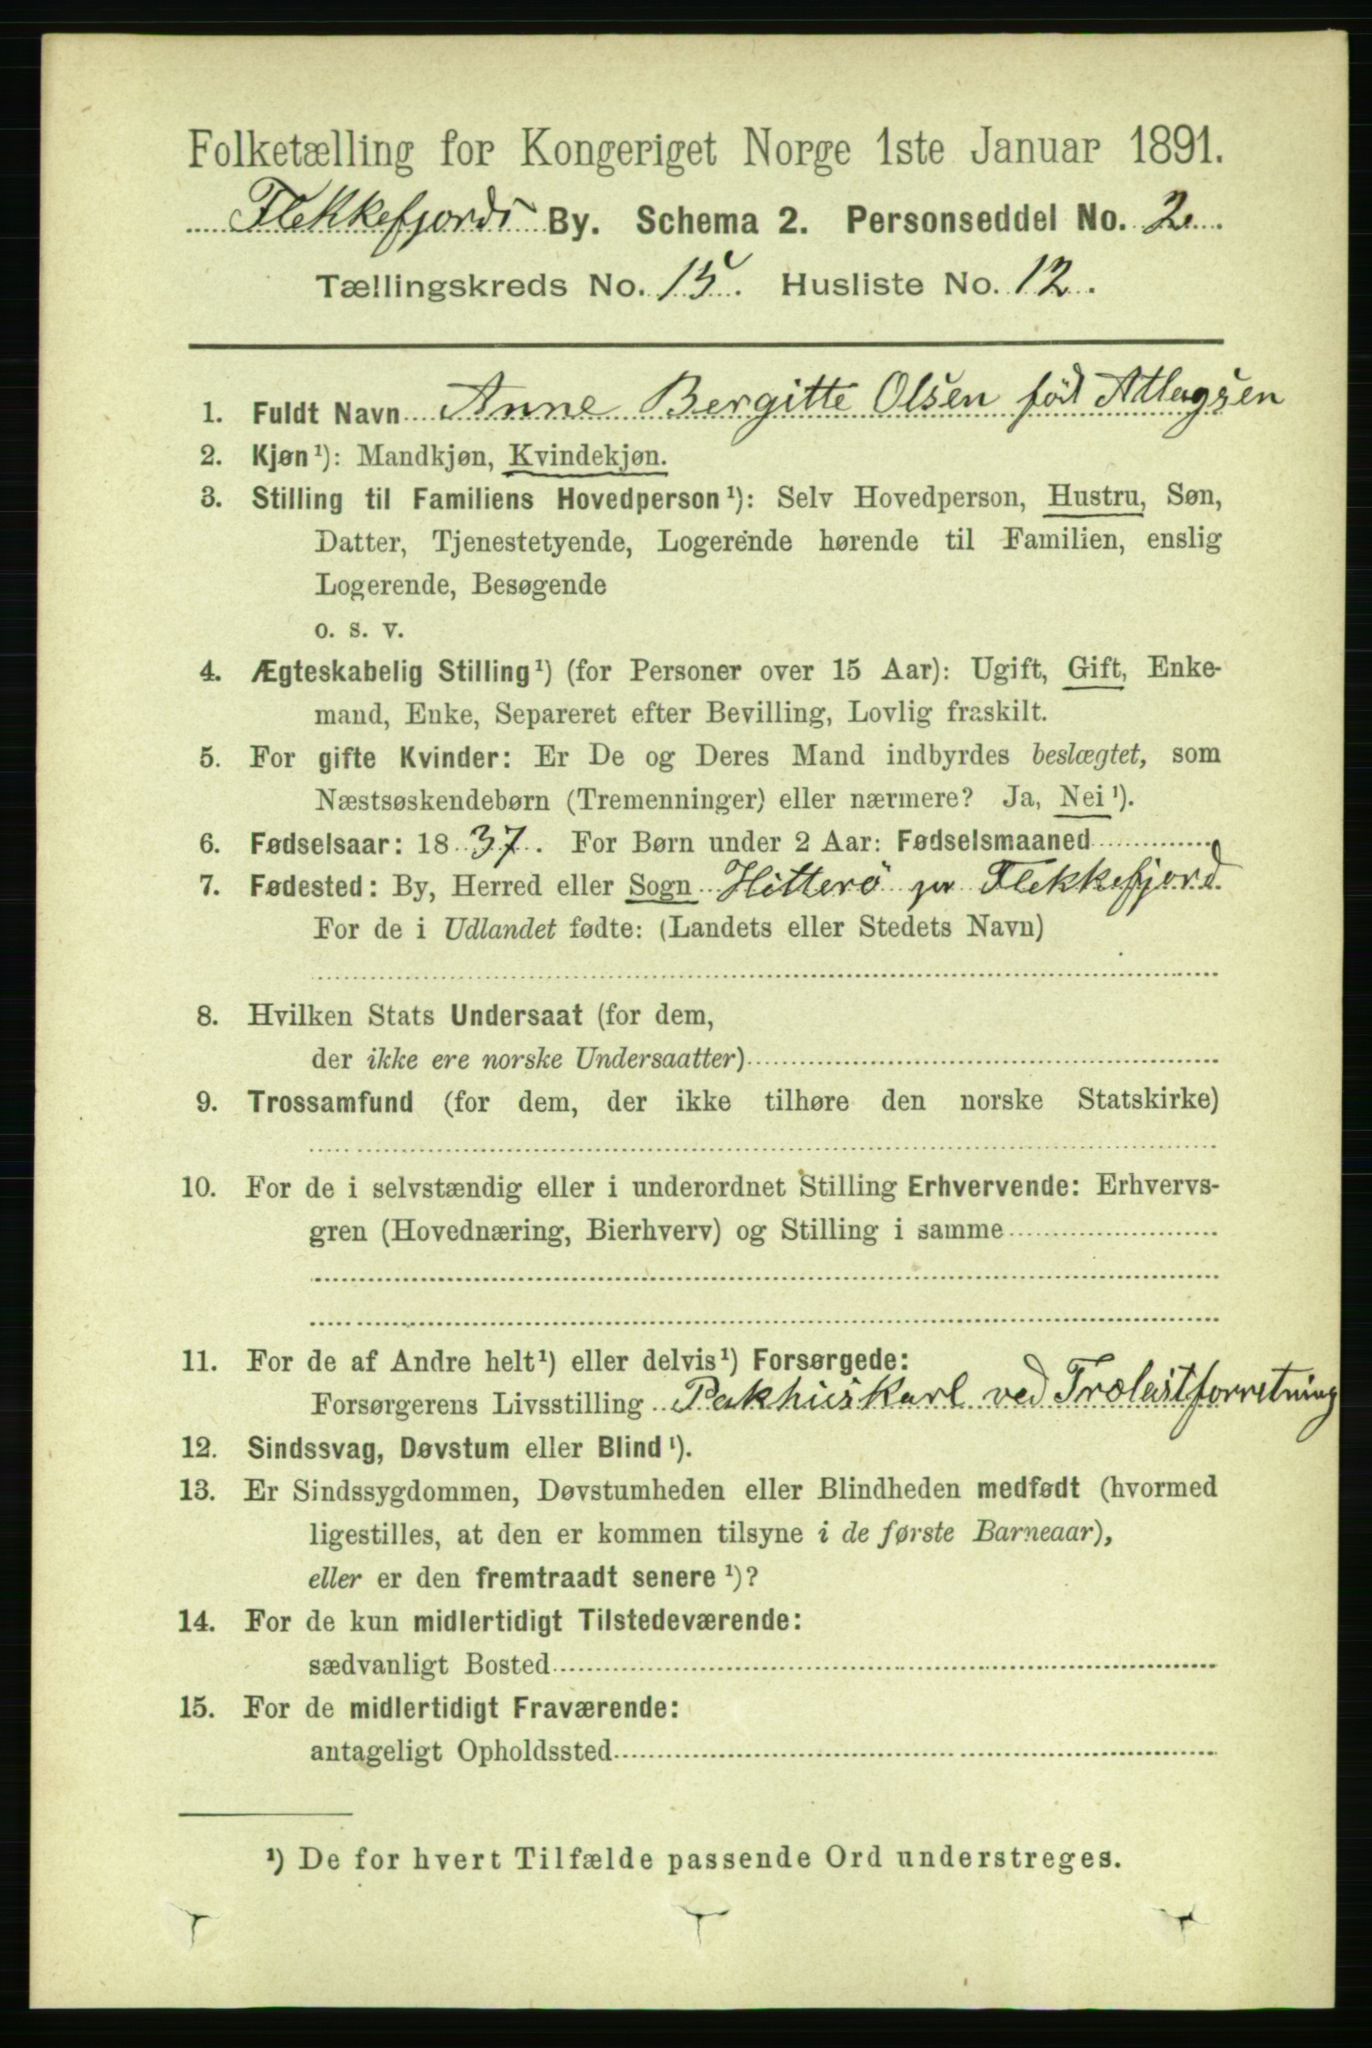 Folketælling for Kongeriget Norge 1ste Januar 1891.
Flekkefjords By. Schema 2. Personseddel No. 2.
Tællingskreds No. 15. Husliste No. 12.
1. Fuldt Navn Anne Bergitte Olsen föd Atlagsen
2. Kjøn¹): Mandkjøn, Kvindekjøn.
3. Stilling til Familiens Hovedperson¹): Selv Hovedperson, Hustru, Søn,
Datter, Tjenestetyende, Logerende hørende til Familien, enslig
Logerende, Besøgende
o. s. v.
4. Ægteskabelig Stilling¹) (for Personer over 15 Aar): Ugift, Gift, Enke-
mand, Enke, Separeret efter Bevilling, Lovlig fraskilt.
5. For gifte Kvinder: Er De og Deres Mand indbyrdes beslægtet, som
Næstsøskendebørn (Tremenninger) eller nærmere? Ja, Nei¹).
6. Fødselsaar: 1837. For Børn under 2 Aar: Fødselsmaaned
7. Fødested: By, Herred eller Sogn Hitterö pr Flekkefjord.
For de i Udlandet fødte: (Landets eller Stedets Navn)
8. Hvilken Stats Undersaat (for dem,
der ikke ere norske Undersaatter)
9. Trossamfund (for dem, der ikke tilhøre den norske Statskirke)
10. For de i selvstændig eller i underordnet Stilling Erhvervende: Erhvervs-
gren (Hovednæring, Bierhverv) og Stilling i samme
11. For de af Andre helt¹) eller delvis¹) Forsørgede:
Forsørgerens Livsstilling Pakhuskarl ved Trælastforretning
12. Sindssvag, Døvstum eller Blind¹).
13. Er Sindssygdommen, Døvstumheden eller Blindheden medfødt (hvormed
ligestilles, at den er kommen tilsyne i de første Barneaar),
eller er den fremtraadt senere¹)?
14. For de kun midlertidigt Tilstedeværende:
sædvanligt Bosted
15. For de midlertidigt Fraværende:
antageligt Opholdssted
¹) De for hvert Tilfælde passende Ord understreges.